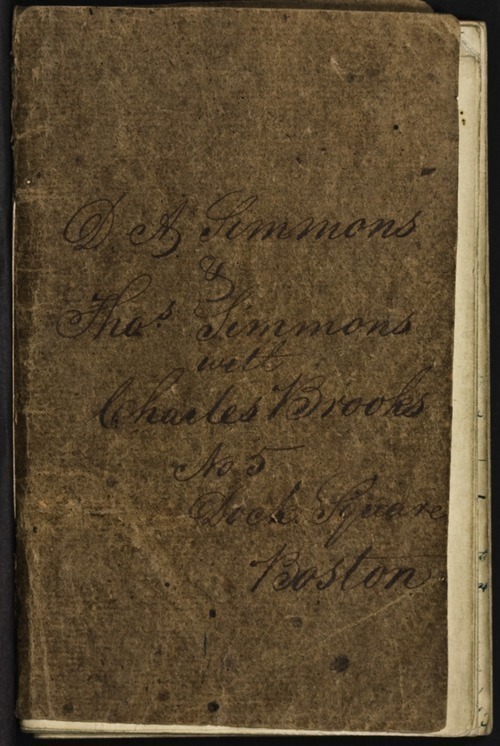 D. A. Simmons
&
Thos Simmons
with
Charles Brooks
No 5
Dock Square
Boston